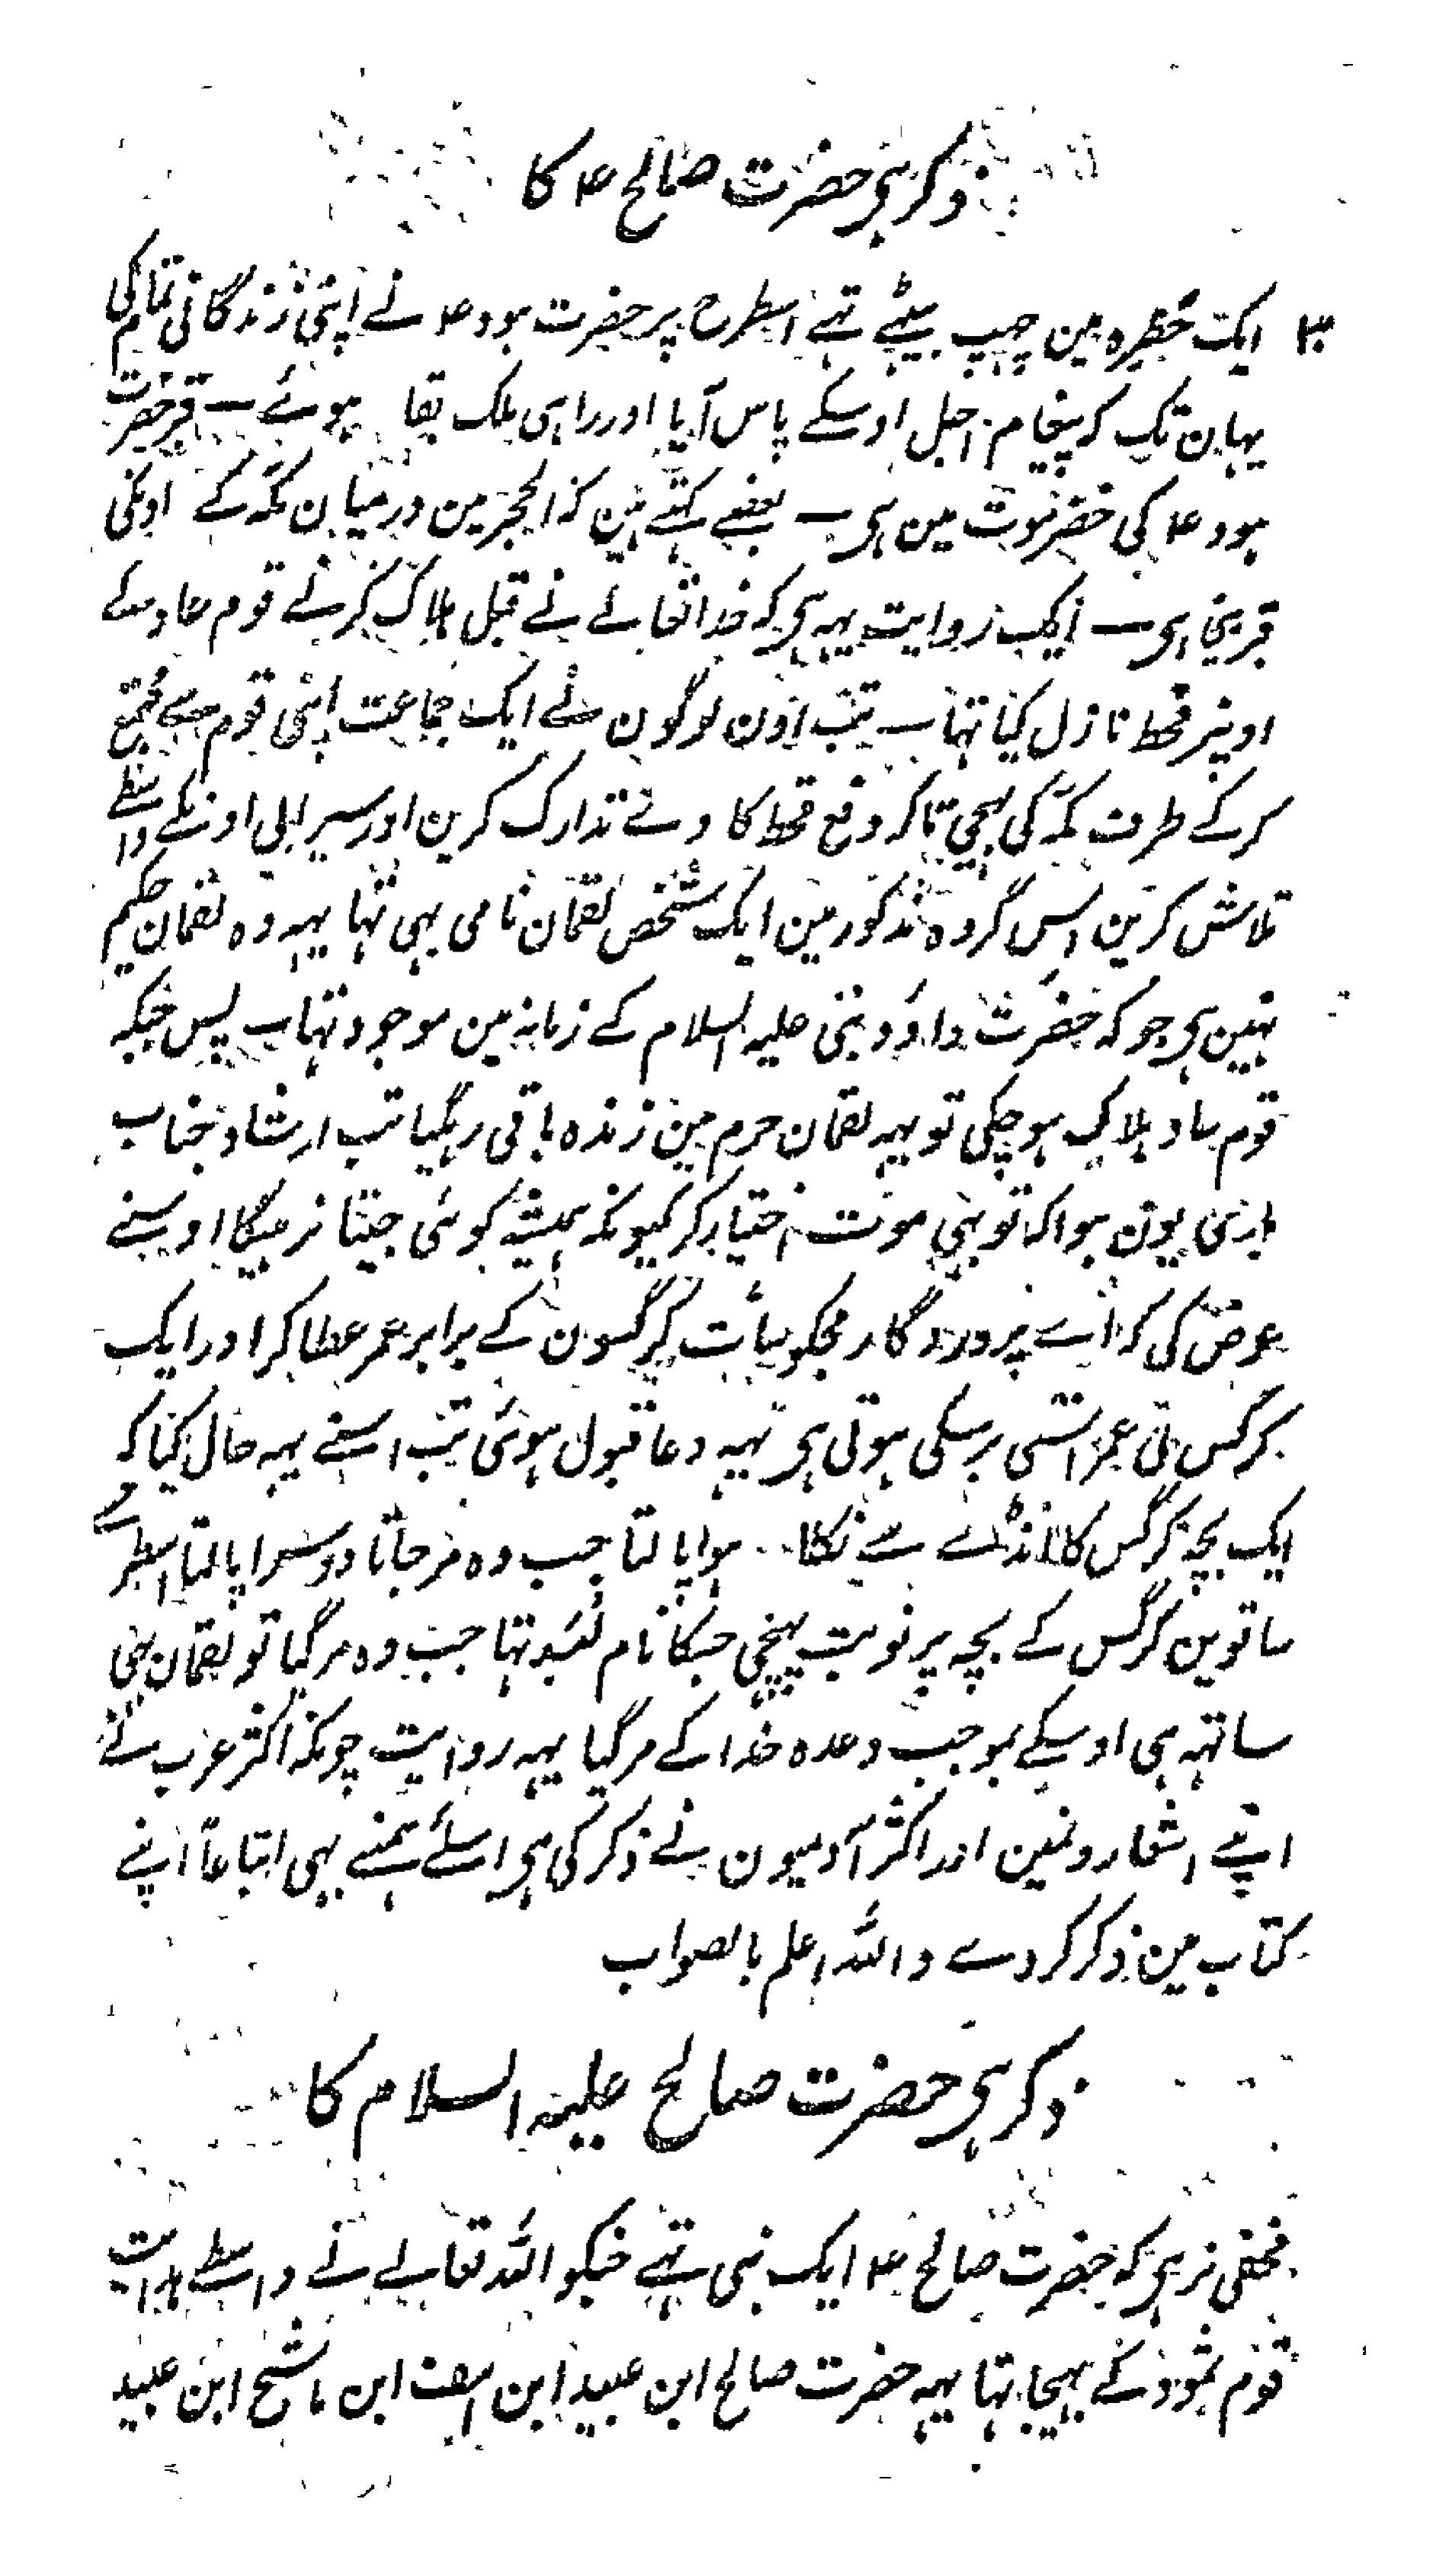 ذکر ہی حضرت صالح ؑ کا
ایک حظیرہ مین چپ بیٹھے تہے اسطرح پر حضرت ہود ؑ نے اپنی زندگانی تمام کی
یہان تک کہ پیغام اجل اوسکے پاس آیا اور راہی ملک بقا ہوئے ــ قبر حضرت
ہود ؑ کی حضرموت مین ہی ــ بعضے کہتے ہین کہ الحجر مین درمیان مکہ کے اونکی
قبر ہی ــ ایک روایت یہہ ہی کہ خدا تعالے نے قبل ہلاک کرنے قوم عاد کے
اونپر قحط نازل کیا تہا ــ تب اون لوگون نے ایک جماعت اپنی قوم سے مجتمع
کرکے طرف مکہ کی بھیجی تاکہ دفع قحط کا وے تدارک کرین اور سیرابی اونکے واسطے
تلاش کرین اس گروہ مذکور مین ایک شخص لقمان نامی بہی تہا یہہ وہ لقمان حکیم
نہین ہی جو کہ حضرت داؤد نبی علیہ السلام کے زمانہ مین موجود تہا ــ پس جبکہ
قوم عاد ہلاک ہوچکی تو یہہ لقمان حرم مین زندہ باقی رہگیا تب ارشاد جناب
باری یون ہوا کہ تو بہی موت اختیار کر کیونکہ ہمیشہ کوئی جیتا نرہیگا اوسنے
عرض کی کہ اے پروردگار مجکو سات کرگسون کے برابر عمر عطا کر اور ایک
کرگس کی عمر اسّی برسکی ہوتی ہی یہہ دعا قبول ہوئی تب اسنے یہہ حال کیا کہ
ایک بچہ کرگس کا انڈے سے نکلا ہوا پالتا جب وہ مرجاتا دوسرا پالتا اسطرح
ساتوین کرگس کے بچہ پر نوبت پہنچی جسکا نام لُبَد تہا جب وہ مرگیا تو لقمان بہی
ساتہہ ہی اوسکے بموجب وعدہ خدا کے مرگیا یہہ روایت چونکہ اکثر عرب نے
اپنے اشعارونمین اور اکثر آدمیون نے ذکر کی ہی اسلئے ہمنے بہی اتباعاً اپنے
کتاب مین ذکر کردے واللہ اعلم بالصواب
ذکر ہی حضرت صالح علیہ السلام کا
مخفی نرہی کہ حضرت صالح ؑ ایک نبی تہے جنکو اللہ تعالے نے واسطے ہدایت
قوم ثمود کے بہیجا تہا یہہ حضرت صالح ابن عبید ابن اسف ابن ماشح ابن عبید